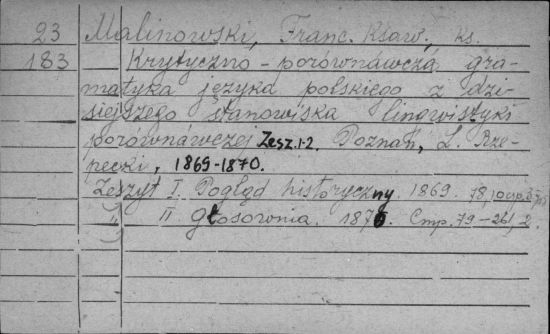 23 Malinowski, Franc. Ksaw., ks.
183 Krytyczno-porównawcza gra-
matyka języka polskiego z dzi-
siejszego stanowiska lingwistyki
porównawczej Zesz. 1-2. Poznań, L. Rze-
pecki, 1869-1870.
Zeszyt I. Pogląd historyczny. 1869. 78,
" II Głosownia. 1870. Стр. 79-261, 2.